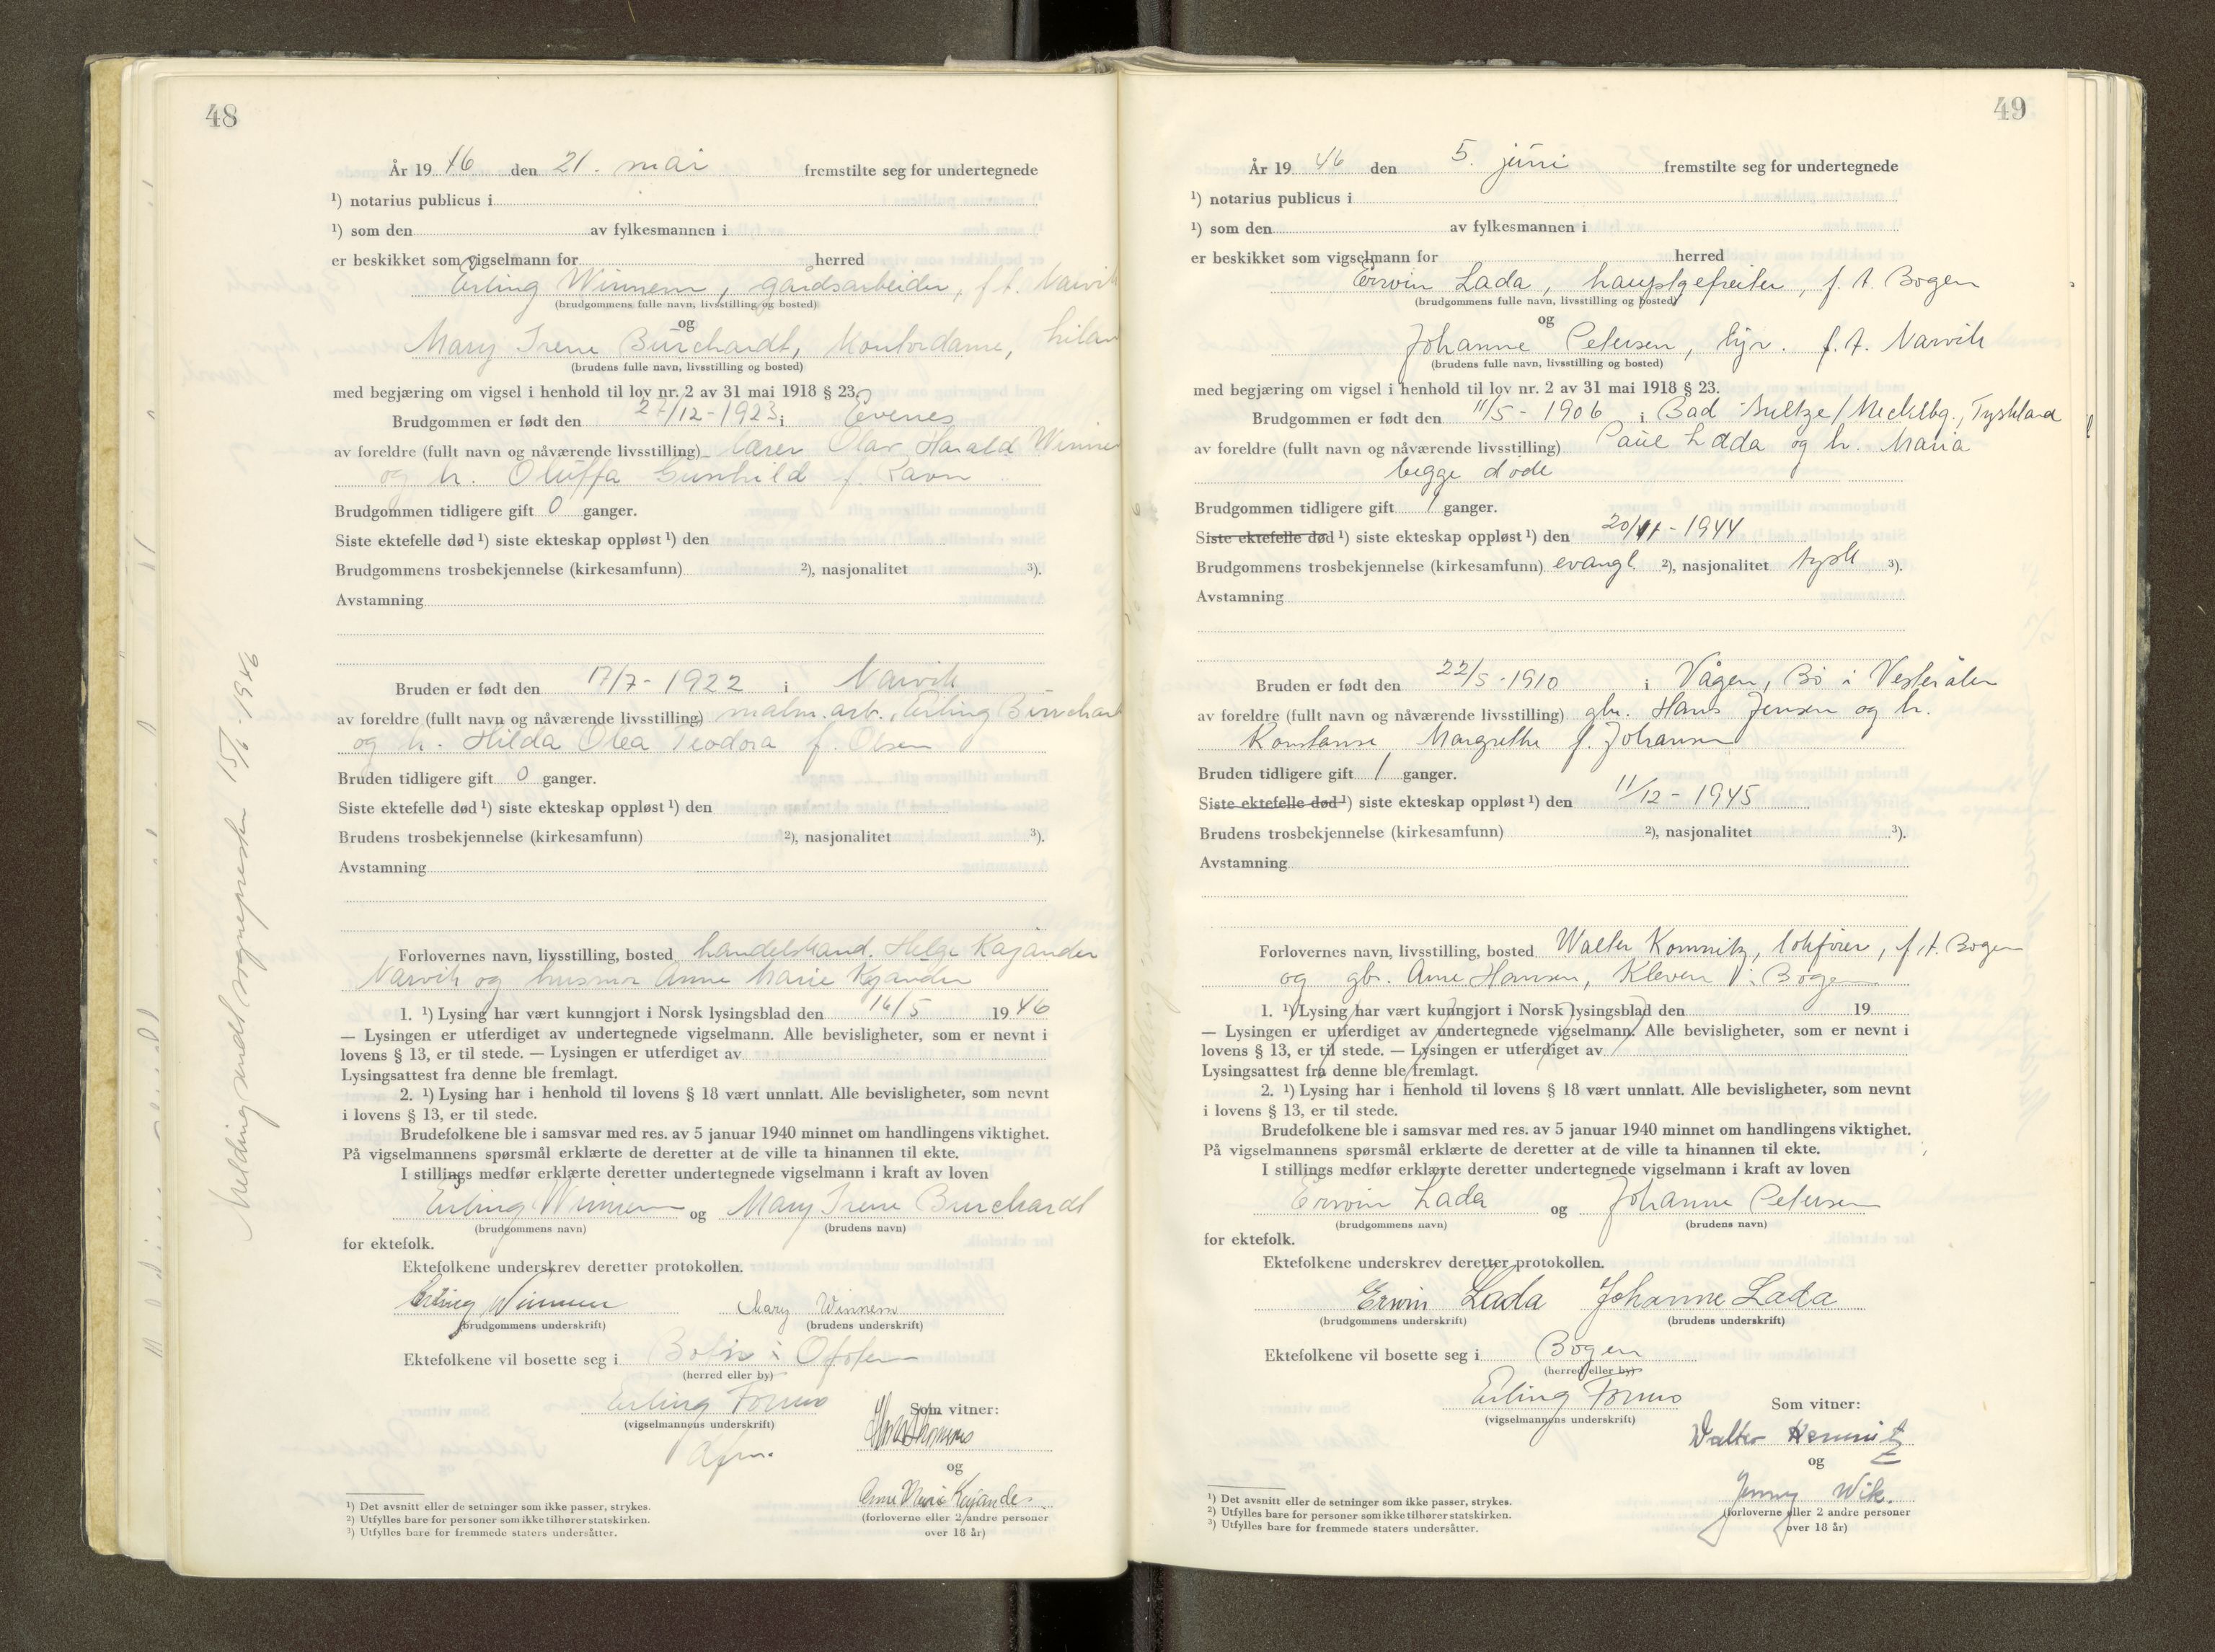 48
År 19 46 den 21. mai fremstilte seg for undertegnede
¹) notarius publicus i
¹) som den av fylkesmannen i
er beskikket som vigselmann for herred
Erling Winnem, gårdsarbeider, f.t. Narvik
(brudgommens fulle navn, livsstilling og bosted)
og
Mary Irene Burchardt, kontordame,
(brudens fulle navn, livsstilling og bosted)
med begjæring om vigsel i henhold til lov nr. 2 av 31 mai 1918 § 23.
Brudgommen er født den 27/12 - 1923 i Evenes
av foreldre (fullt navn og nåværende livsstilling) lærer Olav Harald Winnem
og h. Oluffa Gunhild f. Ravn
Brudgommen tidligere gift 0 ganger.
Siste ektefelle død ¹) siste ekteskap oppløst ¹) den
Brudgommens trosbekjennelse (kirkesamfunn) ²), nasjonalitet ³).
Avstamning
Bruden er født den 17/7 - 1922 i Narvik
av foreldre (fullt navn og nåværende livsstilling) malm.arb. Erling Burchardt
og h. Hilda Olea Teodora f. Olsen
Bruden tidligere gift 0 ganger.
Siste ektefelle død ¹) siste ekteskap oppløst ¹) den
Brudens trosbekjennelse (kirkesamfunn) ²), nasjonalitet ³).
Avstamning
Forlovernes navn, livsstilling, bosted handelsmand. Helge Kajander
Narvik og husmor Anne Marie Kajander
1. ¹) Lysing har vært kunngjort i Norsk lysingsblad den 16/5 19 46
— Lysingen er utferdiget av undertegnede vigselmann. Alle bevisligheter, som er nevnt i
lovens § 13, er til stede. — Lysingen er utferdiget av
Lysingsattest fra denne ble fremlagt.
2. ¹) Lysing har i henhold til lovens § 18 vært unnlatt. Alle bevisligheter, som nevnt
i lovens § 13, er til stede.
Brudefolkene ble i samsvar med res. av 5 januar 1940 minnet om handlingens viktighet.
På vigselmannens spørsmål erklærte de deretter at de ville ta hinannen til ekte.
I stillings medfør erklærte deretter undertegnede vigselmann i kraft av loven
Erling Winnem og Mary Irene Burchardt
(brudgommens navn) (brudens navn)
for ektefolk.
Ektefolkene underskrev deretter protokollen.
Erling Winnem Mary Winnem
(brudgommens underskrift) (brudens underskrift)
Ektefolkene vil bosette seg i i Ofoten
(herred eller by)
Erling Formo
(vigselmannens underskrift) Som vitner:
og
Anne Marie Kajander
(forloverne eller 2 andre personer
over 18 år)
¹) Det avsnitt eller de setninger som ikke passer, strykes.
²) Utfylles bare for personer som ikke tilhører statskirken.
³) Utfylles bare for fremmede staters undersåtter.
Melding sendt sogneprest 15/6 1946
49
År 19 46 den 5. juni fremstilte seg for undertegnede
¹) notarius publicus i
¹) som den av fylkesmannen i
er beskikket som vigselmann for herred
Erwin Lada, hauptgefreiter, f.t. Bogen
(brudgommens fulle navn, livsstilling og bosted)
og
Johanne Petersen, f.t. Narvik
(brudens fulle navn, livsstilling og bosted)
med begjæring om vigsel i henhold til lov nr. 2 av 31 mai 1918 § 23.
Brudgommen er født den 11/5 - 1906 i Bad Sultze/Mecklbg., Tyskland
av foreldre (fullt navn og nåværende livsstilling) Paul Lada og h. Maria
begge døde
Brudgommen tidligere gift 1 ganger.
Siste ektefelle død ¹) siste ekteskap oppløst ¹) den 20/11 - 1944
Brudgommens trosbekjennelse (kirkesamfunn) evangl. ²), nasjonalitet tysk ³).
Avstamning
Bruden er født den 22/5 - 1910 i Vågen, Bø i Vesterålen
av foreldre (fullt navn og nåværende livsstilling) gbr. Hans Jensen og h.
Konstanse Margrethe f. Johansen
Bruden tidligere gift 1 ganger.
Siste ektefelle død ¹) siste ekteskap oppløst ¹) den 11/12 - 1945
Brudens trosbekjennelse (kirkesamfunn) ²), nasjonalitet ³).
Avstamning
Forlovernes navn, livsstilling, bosted Walter f.t. Bogen
og gbr. Arne Hansen, Kleven i Bogen
1. ¹) Lysing har vært kunngjort i Norsk lysingsblad den 19
— Lysingen er utferdiget av undertegnede vigselmann. Alle bevisligheter, som er nevnt i
lovens § 13, er til stede. — Lysingen er utferdiget av
Lysingsattest fra denne ble fremlagt.
2. ¹) Lysing har i henhold til lovens § 18 vært unnlatt. Alle bevisligheter, som nevnt
i lovens § 13, er til stede.
Brudefolkene ble i samsvar med res. av 5 januar 1940 minnet om handlingens viktighet.
På vigselmannens spørsmål erklærte de deretter at de ville ta hinannen til ekte.
I stillings medfør erklærte deretter undertegnede vigselmann i kraft av loven
Erwin Lada og Johanne Petersen
(brudgommens navn) (brudens navn)
for ektefolk.
Ektefolkene underskrev deretter protokollen.
Erwin Lada Johanne Lada
(brudgommens underskrift) (brudens underskrift)
Ektefolkene vil bosette seg i Bogen
(herred eller by)
Erling Formo
(vigselmannens underskrift) Som vitner:
Walter
og
Jenny Wik.
(forloverne eller 2 andre personer
over 18 år)
¹) Det avsnitt eller de setninger som ikke passer, strykes.
²) Utfylles bare for personer som ikke tilhører statskirken.
³) Utfylles bare for fremmede staters undersåtter.